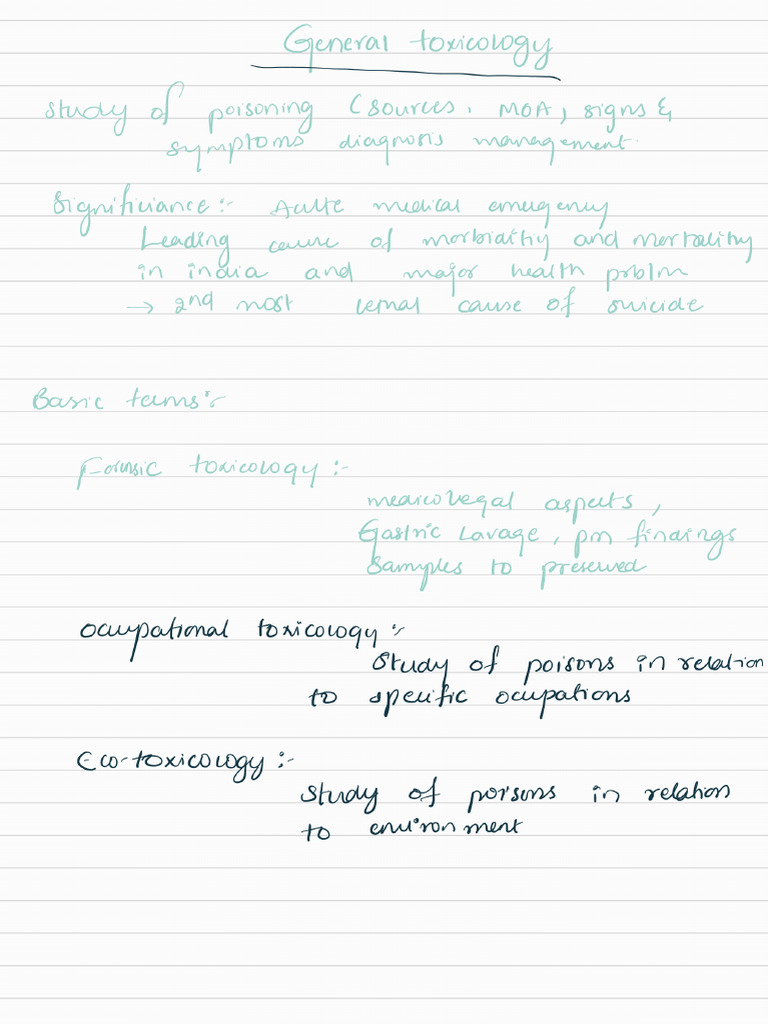 General toxicology
Study of poisoning (sources, MOA, signs &
symptoms diagnosis management.
Significiance :- Acute medical emergency
Leading cause of morbidity and mortality
in india and major health problm
→ 2nd most cause of suicide
Basic terms :-
Forensic toxicology :-
medicolegal aspects,
Gastric Lavage, pm findings
Samples to preserved
Ocupational toxicology :-
Study of poisons in relation
to specific ocupations
Eco-toxicology :-
Study of poisons in relation
to environment